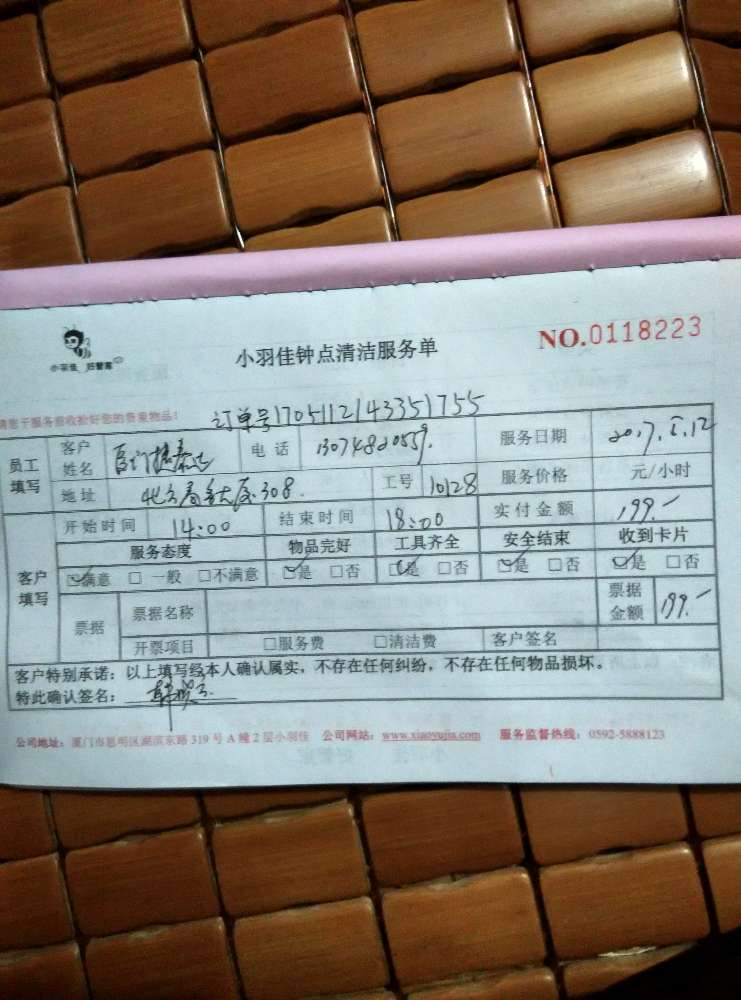 小羽佳 好管家
小羽佳钟点清洁服务单
NO.0118223
请您于服务前收捡好您的贵重物品!
订单号1705112143351755
员工填写 客户姓名 电话 13074820559. 服务日期 2017.5.12
地址 308. 工号 10128 服务价格 元/小时
客户填写 开始时间 14:00 结束时间 18:00 实付金额 199.-
服务态度 物品完好 工具齐全 安全结束 收到卡片
☑满意 □一般 □不满意 ☑是 □否 ☑是 □否 ☑是 □否 ☑是 □否
票据 票据名称 票据金额 199.-
开票项目 □服务费 □清洁费 客户签名
客户特别承诺:以上填写经本人确认属实,不存在任何纠纷,不存在任何物品损坏。
特此确认签名:
公司地址:厦门市思明区湖滨东路319号A幢2层小羽佳 公司网站:www.xiaoyujia.com 服务监督热线:0592-5888123